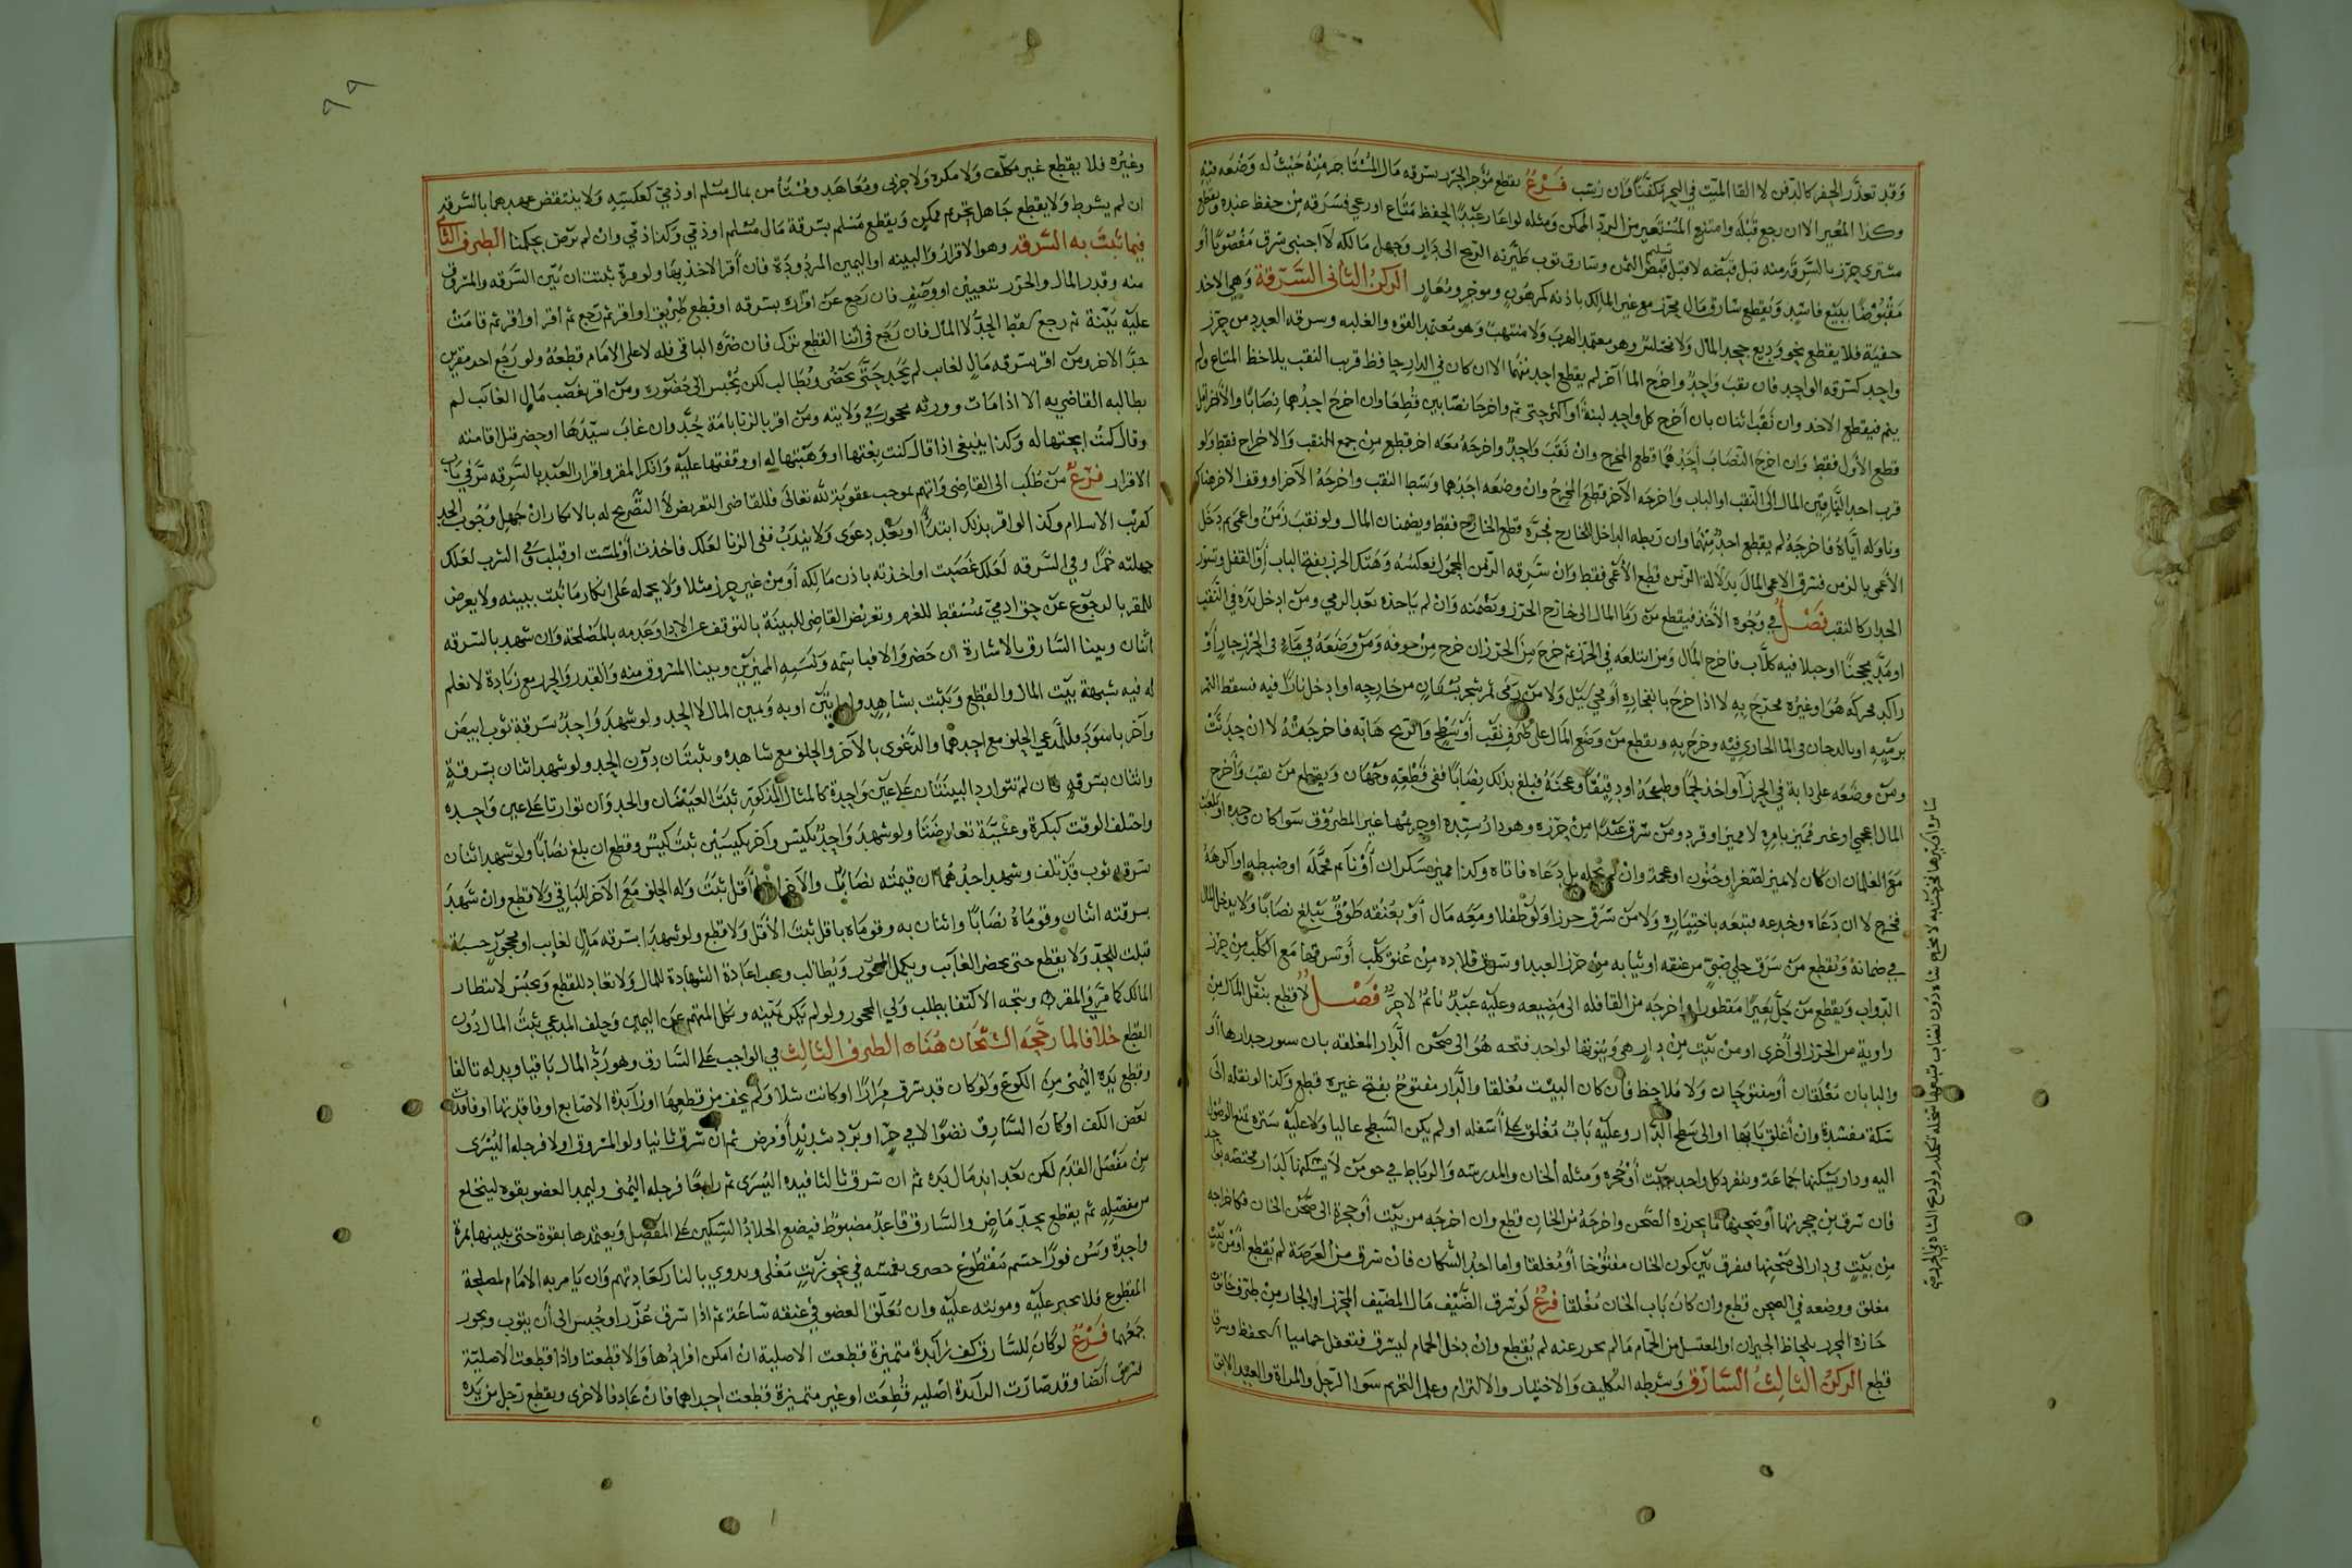 وقد تعذر الحفر كالدفن لا القا الميت في البحر مكفنا وان رسب فرع يقطع مؤجر الحرز بسرقه مال المستاجر منه حيث له وضعه فيه
وكذا المعير الا ان رجع قبله وامتنع المستعير من الرد الممكن ومثله لو اعار عبدا لحفظ متاع او رعي فسرقه من حفظ عبده ويقطع
مشتري حرز بالسرقه منه قبل قبضه لا قبل تسليم الثمن وسارق ثوب طيرته الريح الى دار وجهل مالكه لا اجنبي سرق مغصوبا او
مقبوضا ببيع فاسد ويقطع سارق مال محرز مع غير المالك باذنه كمرهون وموجر ومعار الركن الثاني السرقة وهي الاخذ
خفية فلا يقطع نحو وديع جحد المال ولا مختلس وهو معتمد الهرب ولا منتهب وهو معتمد القوه والغلبه وسرقه العدد من حرز
واحد كسرقه الواحد فان نقب واحد واخرج المال آخر لم يقطع احد منهما الا ان كان في الدار حافظ قريب النقب يلاحظ المتاع ولم
ينم فيقطع الاخذ وان نقب اثنان بان أخرج كل واحد لبنة او اكثر حتى تم واخرجا نصابين قطعا وان اخرج احدهما نصابا والآخر اقل
قطع الأول فقط وان اخرج النصاب أحدهما قطع المخرج وان نقب واحد واخرجه معه اخر قطع من جمع النقب والاخراج فقط ولو
قرب احد الناقبين المال الى النقب او الباب واخرجه الآخر قطع المخرج وان وضعه احدهما وسط النقب واخرجه الآخر او وقف الاخر هناك
وناوله اياه فاخرجه لم يقطع احد منهما وان ربطه الداخل للخارج فجره قطع الخارج فقط ويضمنان المال ولو نقب زمن واعمى ثم دخل
الأعمى بالزمن فسرق الاعمى المال بدلالة الزمن قطع الأعمى فقط وان سرقه الزمن المحمول فعكسه وهتك الحرز بفتح الباب او القفل وتسور
الجدار كالنقب فصل في وجوه الأخذ فيقطع من رما المال الى خارج الحرز وتضمنه وان لم ياخذه بعد الرمي ومن ادخل يده في النقب
او مد محجنا او حبلا فيه كلاب فاخرج المال ومن ابتلعه في الحرز ثم خرج من الحرز ان خرج من جوفه ومن وضعه في ماء في الحرز جار أو
راكد محركه هو او غيره مخرج به لا اذا خرج بانفجاره او مجي سيل ولا من رمى ثمر شجر بستان من خارجه او ادخل نارا فيه فسقط الثمر
ومن وضعه على دابة في الحرز او اخذ لحما وطبخه او دقيقا وعجنه فبلغ بذلك نصابا
مع الغلمان ان كان لا يميز لصغر او جنون او عجمة وان لم يحمله بل دعاه فاتاه وكذا مميز سكران او نائم فحمله او ضبطه او اكرهه
فخرج لا ان دعاه وخدعه فتبعه باختياره ولا من سرق حرا ولو طفلا ومعه مال او بعنقه طوق يبلغ نصابا ولا يدخل المال
في ضمانه ويقطع من سرق حلي صبي من عنقه او ثيابه من حرز العبد او سرق قلاده من عنق كلب أو سرقها مع الكلب من حرز
الدواب ويقطع من حل بعيرا مقطورا واخرجه من القافله الى مضيعه وعليه عبد نائم لا حر فصل لا قطع بنقل المال من
زاوية من الحرز الى أخرى او من بيت من دار هي وبيوتها لواحد فتحه هو الى صحن الدار المغلقه
والبابان مغلقان أو مفتوحان ولا ملاحظ فان كان البيت مغلقا والدار مفتوح بفتح غيره قطع وكذا لو نقله الى
سكة منسدة وان أغلق بابها او الى سطح الدار وعليه باب مغلق على أسفله او لم يكن السطح عاليا ولا عليه سترة تمنع الوصول
اليه ودار يسكنها جماعة وينفرد كل واحد ببيت أو حجره ومثله الخان والمدرسه والرباط في حق من لا يسكنها كدار مختصه
فان سرق من حجرتها أو صحنها ما يحرزه الصحن واخرجه من الخان قطع وان اخرجه من بيت أو حجرة الى صحن الخان فكاخراجه
من بيت في دار الى صحنها فيفرق بين كون الخان مفتوحا أو مغلقا واما احد السكان فان سرق من العرصة لم يقطع او من بيت
مغلق ووضعه في الصحن قطع وان كان باب الخان مغلقا فرع لو سرق الضيف مال المضيف المحرز او الجار من طرف حانوت
جاره المحرز بلحاظ الجيران او المغتسل من الحمام ما لم يحرز عنه لم يقطع وان دخل الحمام ليسرق فتغفل حماميا استحفظ وسرق
قطع الركن الثالث السارق وشرطه التكليف والاختيار والالتزام وعلم التحريم سوا الرجل والمراة والعبد الابق
٩٩
وغيره فلا يقطع غير مكلف ولا مكره ولا حربي ومعاهد ومستأمن بمال مسلم او ذمي كعكسه ولا ينتقض عهدهما بالسرقه
ان لم يشرط ولا يقطع جاهل بتحريم ممكن ويقطع مسلم بسرقة مال مسلم او ذمي وكذا ذمي وان لم يرض بحكمنا الطرف الثا
فيما تثبت به السرقه وهو الاقرار والبينه او اليمين المردودة فان أقر الاخذ بها ولو مرة ثبتت ان بين السرقه والمسروق
منه وقدر المال والحرز بتعيين او وصف فان رجع عن اقراره بسرقه او قطع طريق او اقر ثم رجع ثم أقر او اقر ثم قامت
عليه بينة ثم رجع سقط الحد لا المال فان رجع في اثنا القطع ترك فان ضره الباقي فله لا على الامام قطعه ولو رجع احد مقرين
حد الاخر ومن اقر بسرقه مال لغائب لم يحد حتى يحضر ويطالب لكن يحبس الى حضوره ومن اقر بغصب مال الغائب لم
يطالبه القاضي به الا اذا مات وورثه محجور في ولايته ومن اقر بالزنا بامة حد وان غاب سيدها او حضر قبل اقامته
وقال كنت ابحتها له وكذا ينبغي اذا قال كنت بعتها او وهبتها له او وقفتها عليه وانكر المقر واقرار العبد بالسرقه مر في باب
الاقرار فرع من طلب الى القاضي واتهم بموجب عقوبة لله تعالى فللقاضي التعريض لا التصريح له بالانكار ان جهل وجوب الحد
كقرب الاسلام وكذا لو اقر بذلك ابتداء او بعد دعوى ولا يندب ففي الزنا لعلك فاخذت أو لمست او قبلت وفي الشرب لعلك
جهلته خمرا وفي السرقه لعلك غصبت او اخذته باذن مالكه أو من غير حرز مثلا ولا يحمله على انكار ما ثبت ببينه ولا يعرض
للمقر بالرجوع عن حق ادمي مسقط للغرم وتعريض القاضي للبينة بالتوقف عن الادا وعدمه بالمصلحة وان شهد بالسرقه
اثنان وبينا السارق بالاشارة ان حضر والا فباسمه ونسبه المميزين وبينا المسروق منه والقدر والحرز مع زيادة لا نعلم
له فيه شبهة بيت المال والقطع ويثبت بشاهد وامراتين او به ويمين المال لا الحد ولو شهد واحد بسرقة ثوب ابيض
وآخر باسود فللمدعي الحلف مع احدهما والدعوى بالآخر والحلف مع شاهده ويثبتان دون الحد ولو شهد اثنان بسرقة
واثنان بسرقه فان لم تتوارد البينتان على عين واحدة كالمثال المذكور ثبت العينان والحد وان تواردتا على عين واحده
واختلف الوقت كبكرة وعشية تعارضتا ولو شهد واحد بكيس وآخر بكيسين ثبت كيس وقطع ان بلغ نصابا ولو شهد اثنان
بسرقه ثوب قد تلف وشهد احدهما ان قيمته نصاب والآخر اقل ثبت وله الحلف مع الآخر للباقي ولا قطع وان شهد
بسرقته اثنان وقوماه نصابا واثنان به وقوماه باقل ثبت الأقل ولا قطع ولو شهدا بسرقه مال لغايب او محجور حسبة
قبلت للحد ولا يقطع حتى يحضر الغائب ويكمل المحجور ويطالب ويجب اعادة الشهادة للمال ولا تعاد للقطع ويحبس لانتظار
المالك كما مر في المقر ويتجه الاكتفا بطلب ولي المحجور ولو لم يكن بينه ونكل المتهم عن اليمين وحلف المدعي ثبت المال دون
القطع خلافا لما رجحه الشيخان هنا الطرف الثالث في الواجب على السارق وهو رد المال باقيا وبدله تالفا
وقطع يده اليمنى من الكوع ولو كان قد سرق مرارا او كانت شلا ولم يخف من قطعها او زائدة الاصابع او فاقدتها او فاقدة
بعض الكف او كان السارق نضوا لا في حر او برد شديد أو مرض ثم ان سرق ثانيا ولو المسروق اولا فرجله اليسرى
من مفصل القدم لكن بعد اندمال يده ثم ان سرق ثالثا فيده اليسرى ثم رابعا فرجله اليمنى وليمد العضو بقوه لينخلع
من مفصله ثم يقطع بحد ماض والسارق قاعد مضبوط فيضع الجلاد السكين على المفصل ويعتمدها بقوة حتى يبينها بمرة
واحدة وسن فورا حسم مقطوع بغمسه في نحو زيت مغلى وبدوي بالنار كعادتهم وان يامر به الامام لمصلحة
المقطوع فلا يجبر عليه ومونته عليه وان تعلق العضو في عنقه ساعة ثم اذا سرق عزر او حبس الى أن يتوب ويجوز
جمعهما فرع لو كان للسارق كف زائدة متميزة قطعت الاصلية ان امكن افرادها والا قطعتا واذا قطعت الاصلية
سرق أيضا وقد صارت الزائدة اصليه قطعت او غير متميزة قطعت احداهما فان عاد فالاخرى ويقطع رجل من يده